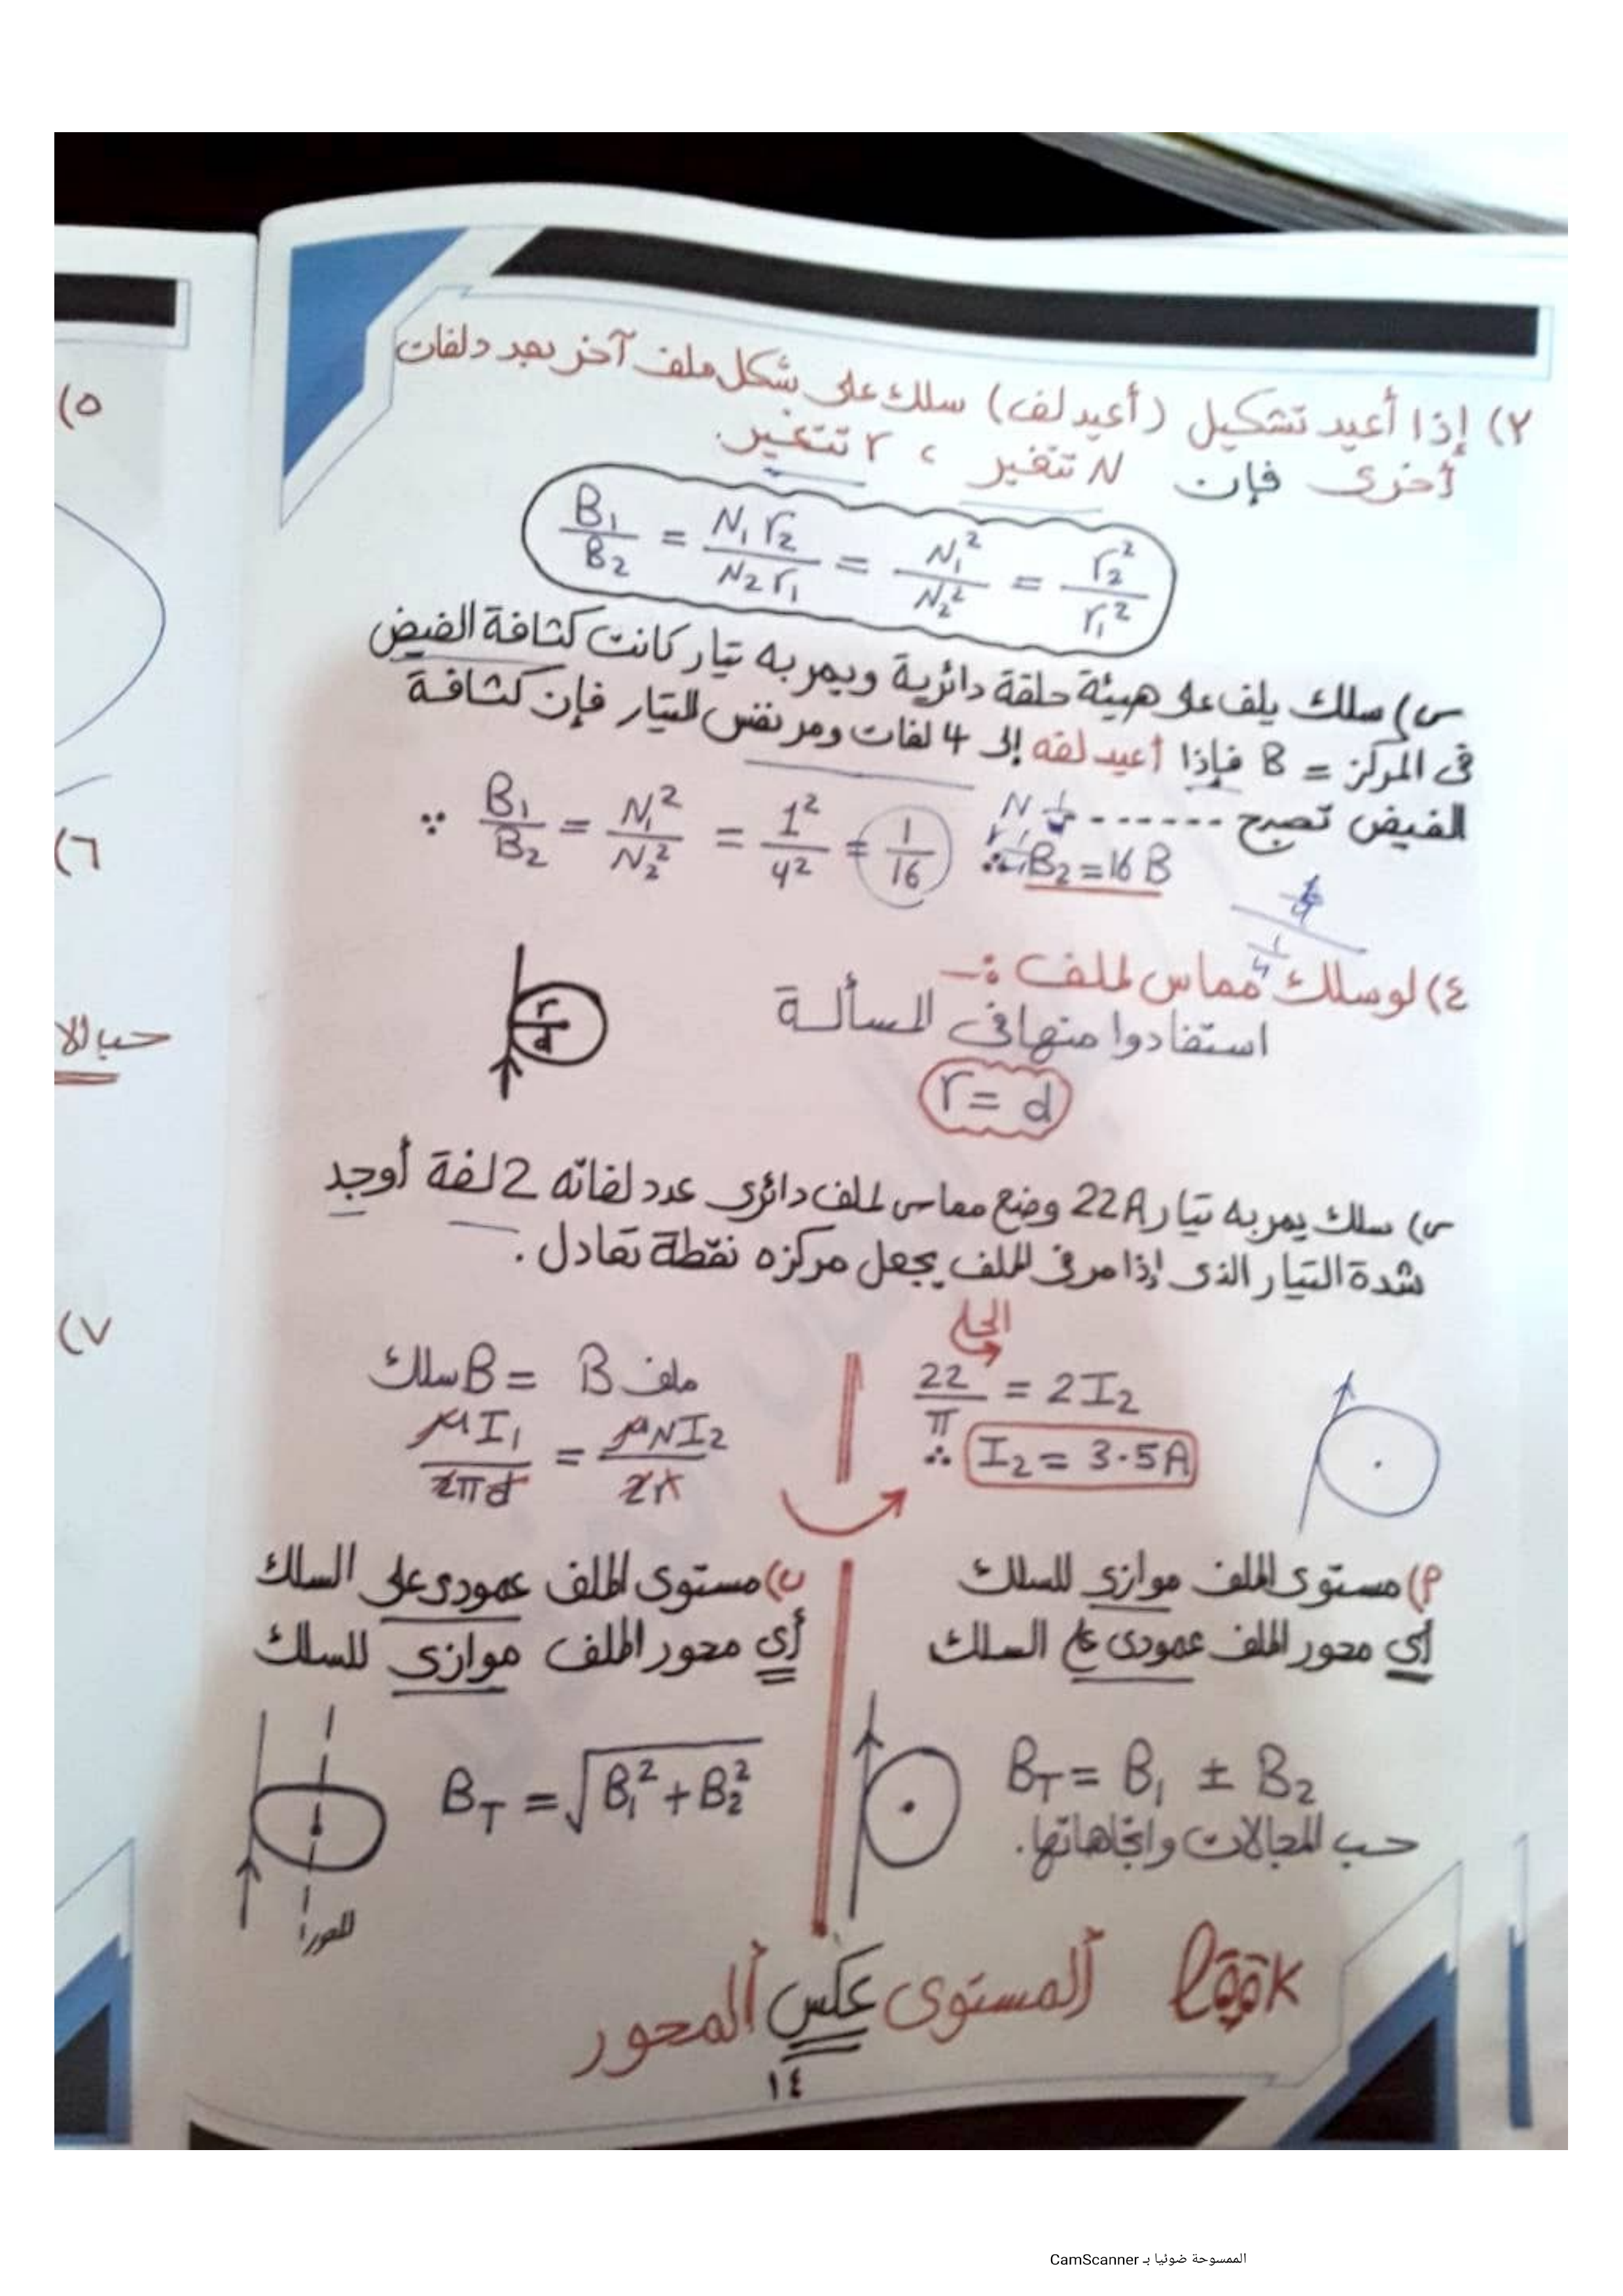 ٢) إذا أعيد تشكيل (أعيد لف) سلك على شكل ملف آخر بعدد لفات
أخرى فإن N تتغير ، r تتغير.
B₁/B₂ = N₁ r₂/N₂ r₁ = N₁²/N₂² = r₂²/r₁²
س) سلك يلف على هيئة حلقة دائرية ويمر به تيار كانت كثافة الفيض
فى المركز = B فإذا أعيد لفه إلى 4 لفات ومر نفس التيار فإن كثافة
الفيض تصبح ------
∵ B₁/B₂ = N₁²/N₂² = 1²/4² = 1/16 ∴ B₂ = 16 B
٤) لو سلك مماس لملف :-
استفادوا منها فى المسألة
r = d
r
d
س) سلك يمر به تيار 22A وضع مماس لملف دائرى عدد لفاته 2 لفة أوجد
شدة التيار الذى إذا مر فى الملف يجعل مركزه نقطة تعادل .
الحل
B سلك = B ملف
μI₁/2πd = μNI₂/2r
22/π = 2I₂
∴ I₂ = 3.5A
٥)
٦)
حب للا
٧)
أ) مستوى الملف موازى للسلك
أي محور الملف عمودى على السلك
B_T = B₁ ± B₂
حب المجالات واتجاهاتها.
ب) مستوى الملف عمودى على السلك
أي محور الملف موازى للسلك
B_T = √(B₁² + B₂²)
المحور
look المستوى عكس المحور
١٤
الممسوحة ضوئيا بـ CamScanner